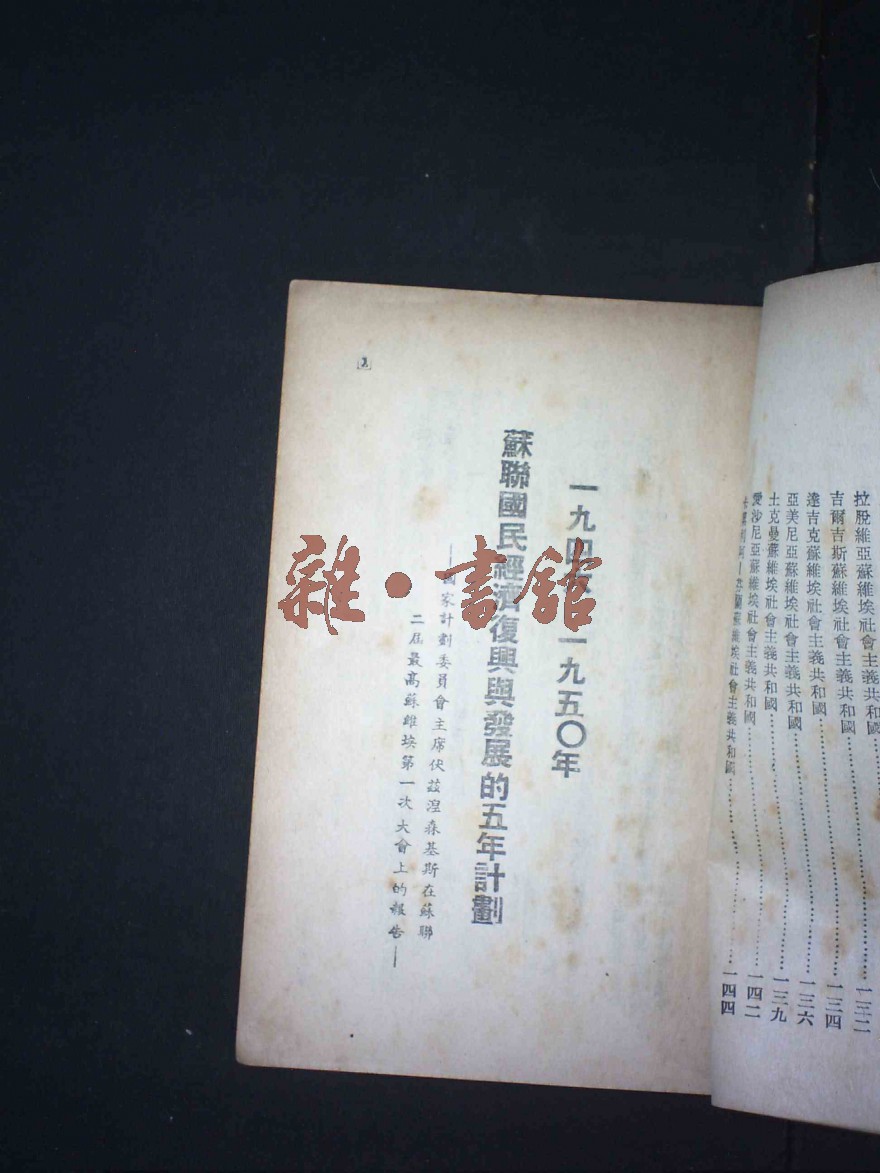 拉脫維亞蘇維埃社會主義共和國……一三二
吉爾吉斯蘇維埃社會主義共和國……一三四
達吉克蘇維埃社會主義共和國……一三六
亞美尼亞蘇維埃社會主義共和國……一三九
土克曼蘇維埃社會主義共和國……一四二
愛沙尼亞蘇維埃社會主義共和國……一四四
蘭蘇維埃社會主義共和國
一九四 一九五〇年
蘇聯國民經濟復興與發展的五年計劃
—國家計劃委員會主席伏茲湼森基斯在蘇聯
二屆最高蘇維埃第一次大會上的報告—
雜·書館